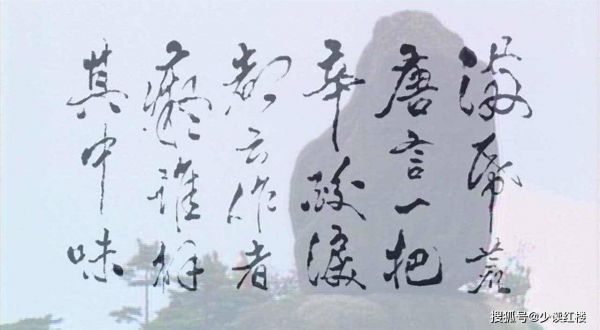 滿帋荒
唐言一把
辛酸淚
都云作者
癡誰解
其中味
搜狐号@少读红楼